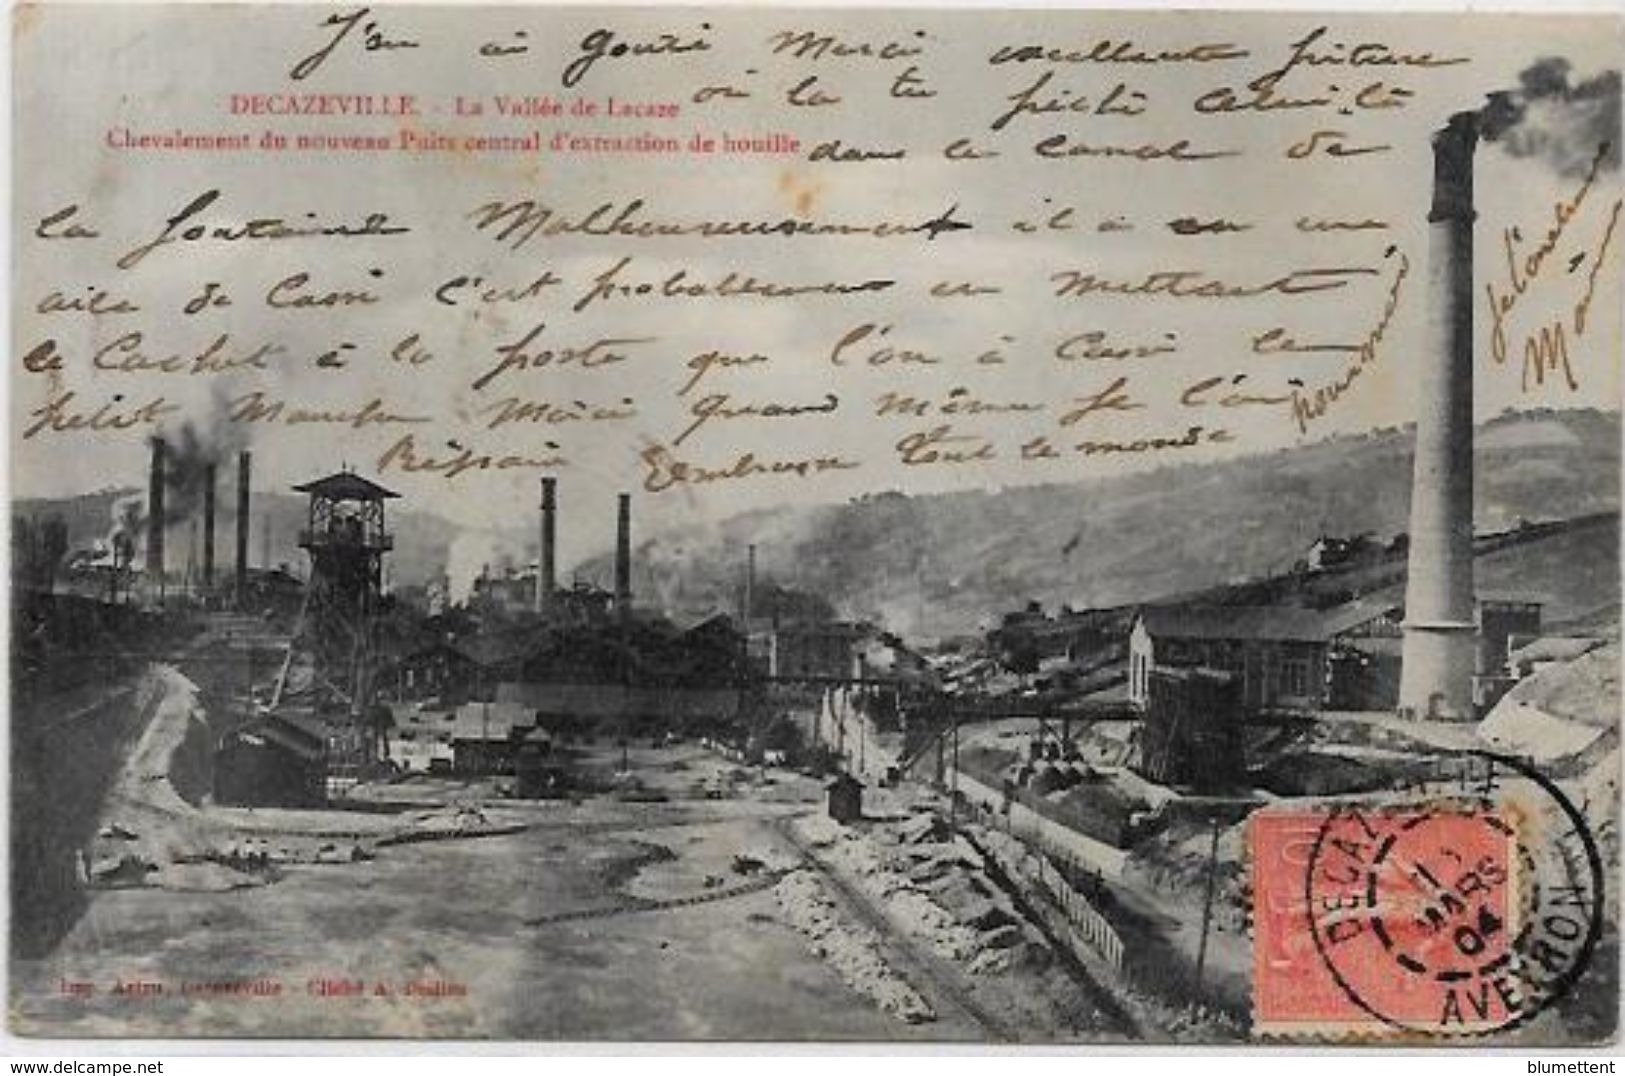 J'en ai gouté Merci excellente friture
DECAZEVILLE. - La Vallée de Lacaze
où la tu pêché celui là
Chevalement du nouveau Puits central d'extraction de houille
dans le canal de
la fontaine Malheureusement il à eu une
aile de Cassé c'est probablement en mettant
le Cachet à la poste que l'on à Cassé le
petit Manche Merci quand même Je l'ai
Embrasse tout le monde
pour moi
Mars
DECAZEVILLE
11
MARS
04
AVEYRON
Imp. Artru, Decazeville - Cliché A.
blumettent